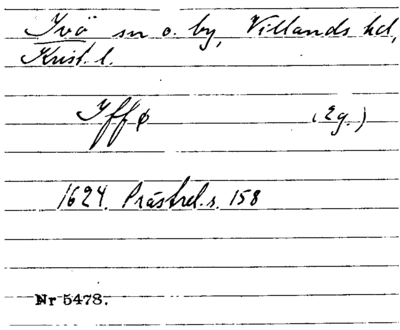 Ivö sn o. by, Villands hd,
Krist. l.
Iffø (Eg.)
1624. Prästrel. s. 158
Nr 5478.